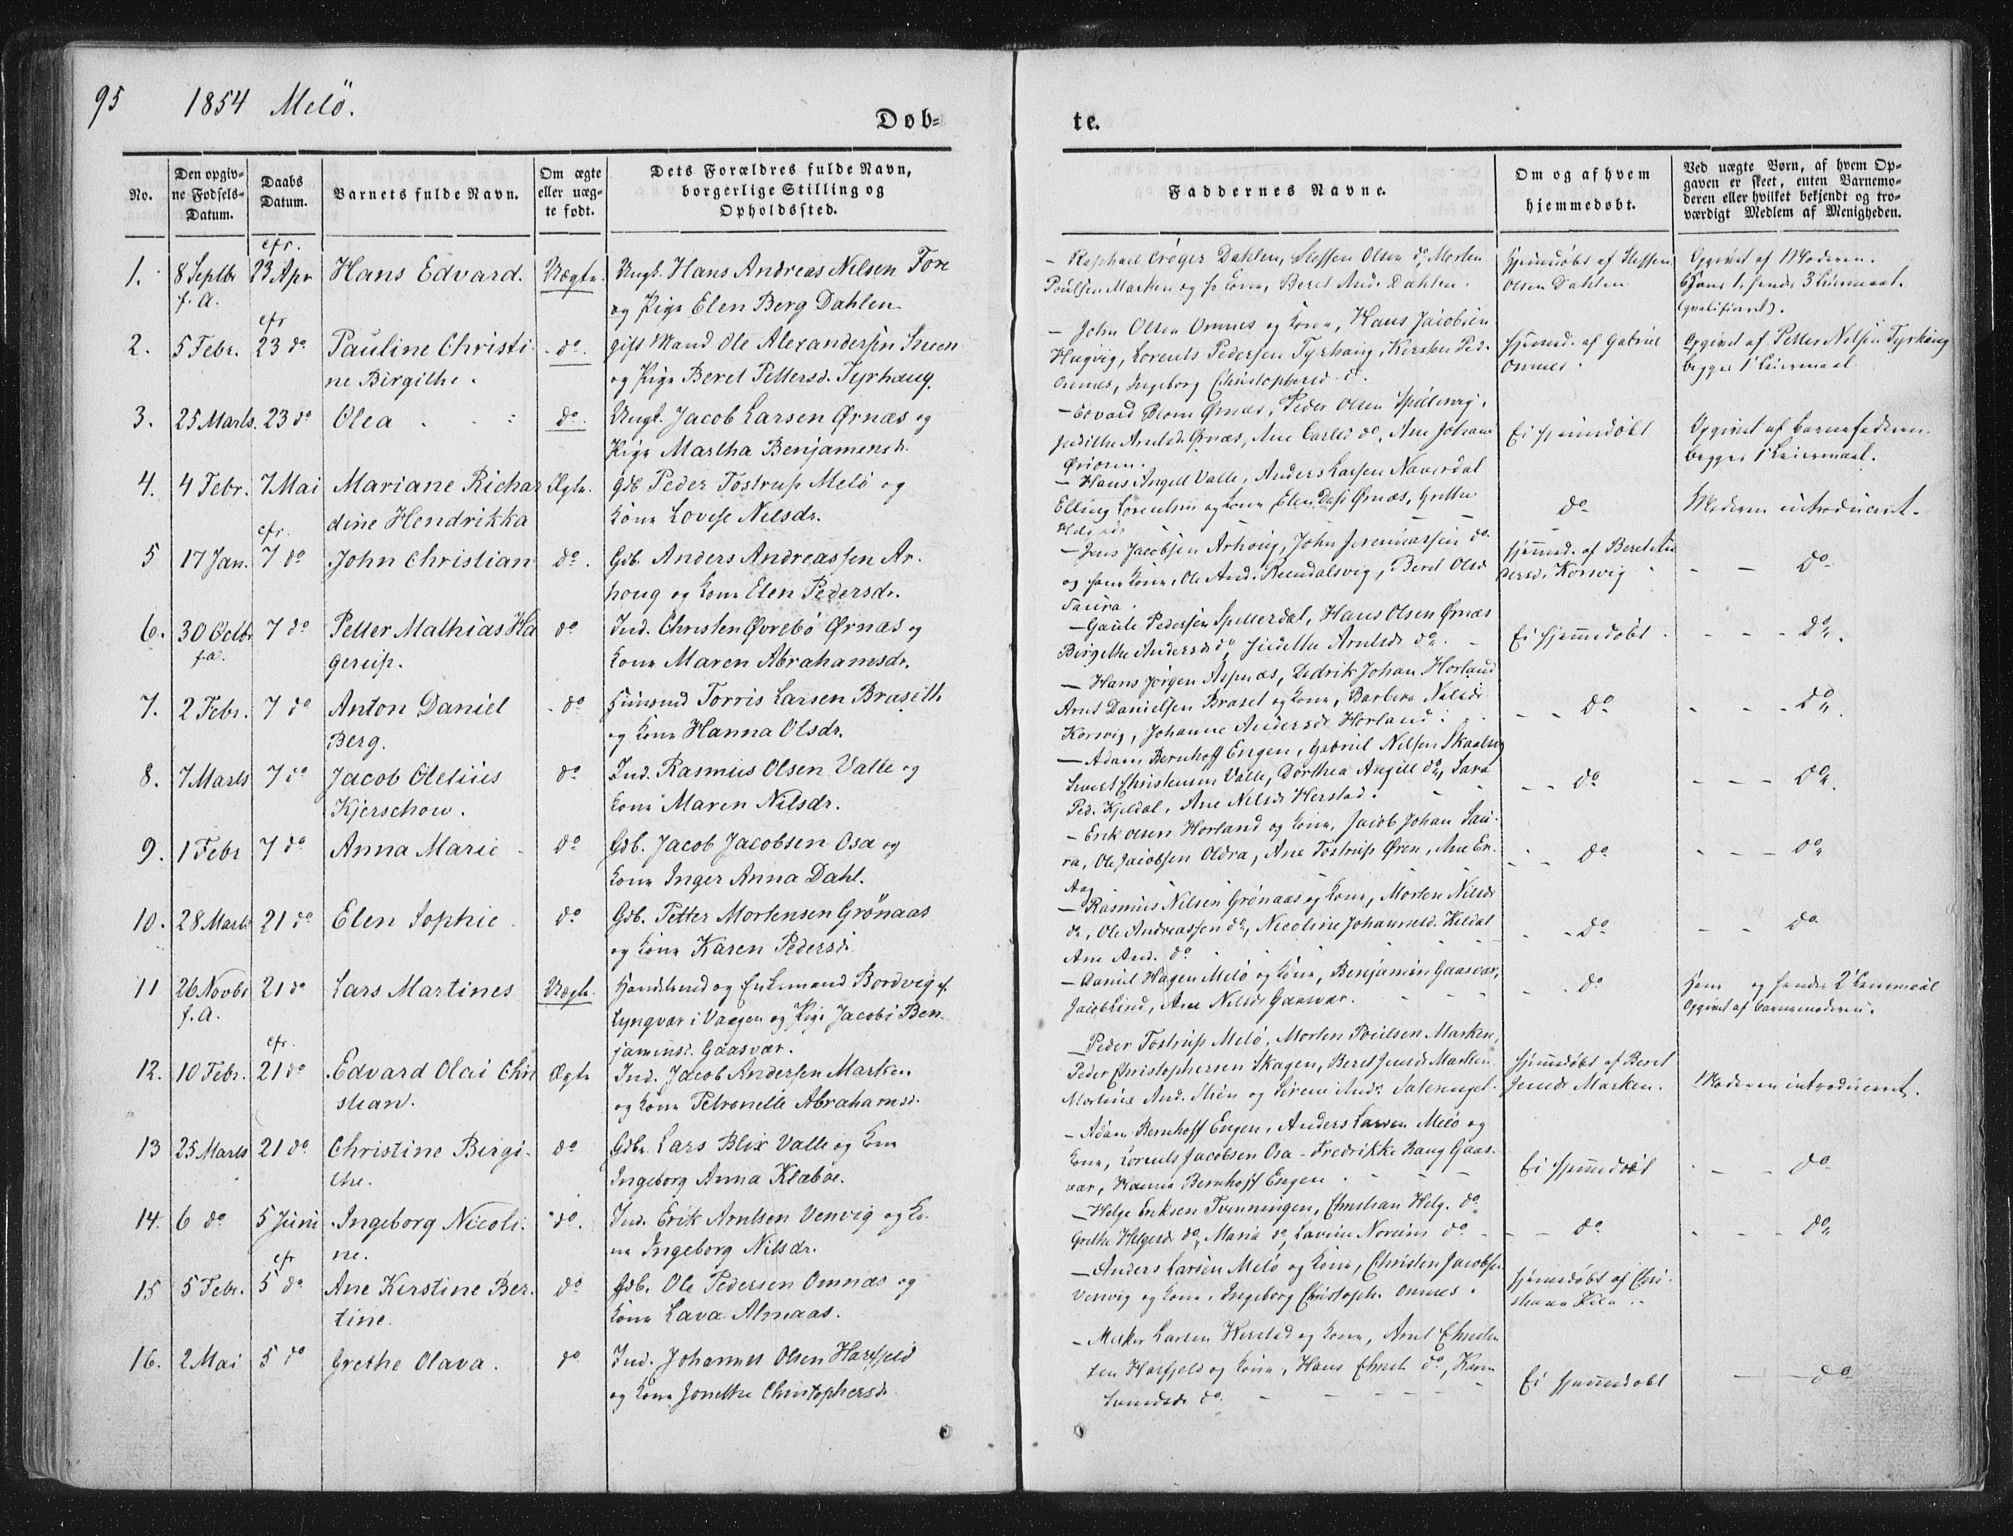 95 1854 Melö.
Døb-
te.
No.
Den opgiv-
ne Fødsels-
Datum.
Daabs
Datum.
Barnets fulde Navn.
Om ægte
eller uæg-
te født.
Dets Forældres fulde Navn,
borgerlige Stilling og
Opholdssted.
Faddernes Navne.
Om og af hvem
hjemmedøbt.
Ved uægte Børn, af hvem Op-
gaven er skeet, enten Barnemo-
deren eller hvilket bekjendt og tro-
værdigt Medlem af Menigheden.
efr.
1. 8 Septbr 23 Apr Hans Edvard. Uægte. Ungk. Hans Andreas Nilsen Fore
f. A. og Pige Elen Berg Dahlen
– Raphael Crøger Dahlen, Steffen Olsen do, Morten
Poulsen Marken og s. Kone, Beret And. Dahlen.
Hjemmedøbt af Steffen
Olsen Dahlen
Opgivet af Moderen.
Hans 1, hendes 3 Leiermaal.
(qvalificeret).
efr
2. 5 Febr. 23 do Pauline Christi- do. gift Mand Ole Alexandersen Sneen
ne Birgithe. og Pige Beret Pettersd. Tyrhaug.
– John Olsen Omnes og Kone, Hans Jacobsen
Hagvig, Lorents Pedersen Tyrhaug, Kirsten Ped.
Omnes, Ingeborg Christophersd. do.
Hjemmed. af Gabriel
Omnes.
Opgivet af Petter Nilsen Tyrhaug
begges 1 Leiermaal.
3. 25 Marts. 23 do Olea do. Ungk. Jacob Larsen Ørnæs og
Pige Martha Benjamensdr.
– Edvard Blom Ørnæs, Peder Olsen Spildervig,
Judithe Arntsd. Ørnæs, Ane Carlsd do, Ane Johan
Ei hjemmedøbt
Opgivet af Barnefaderen.
begges 1 Leiermaal.
4. 4 Febr. 7 Mai Mariane Richar Ægte. Gdb Peder Tostrup Melö og
dine Hendrikka Kone Lovise Nilsdr.
– Hans Angell Valle, Anders Larsen Naverdal
Elling Lorentsen og Kone, Elen Dass Ørnæs, Grethe
do
Moderen introduceret.
efr.
5 17 Jan. 7 do John Christian do. Gdb. Anders Andreassen Ar-
houg og Kone Elen Pedersdr.
– Jens Jacobsen Arhoug, John Jeremiassen do
og hans Kone, Ole And. Reendalsvig, Beret Olsd
Saura.
Hjemmed. af Beret An
dersd. Korsvig
do
6. 30 Octbr 7 do Petter Mathias Ha do Ind. Christen Øvrebö Ørnæs og
f. a. gerup. Kone Maren Abrahamsdr.
– Gaute Pedersen Spilderdal, Hans Olsen Ørnæs
Birgethe Andersd do, Judithe Arntsd do.
Ei hjemmedøbt.
do
7. 2 Febr. 7 do Anton Daniel do Huusmd Torris Larsen Braseth
Berg. og Kone Hanna Olsdr.
– Hans Jörgen Aspnæs, Didrik Johan Horland
Arnt Danielsen Braset og Kone, Barbera Nilsd
Korsvig, Johanne Andersd Horland.
do
do
8. 7 Marts 7 do Jacob Oletius do Ind. Rasmus Olsen Valle og
Kjerschow. Kone Maren Nilsdr.
– Adam Bernhoff Engen, Gabriel Nilsen Skaalsvig
Sivert Christensen Valle, Dorthea Angell do, Sara
Ped. Kjeldal, Ane Nilsd Herstad.
do
do
9. 1 Febr 7 do Anna Marie do Gdb. Jacob Jacobsen Osa og
Kone Inger Anna Dahl.
– Erik Olsen Horland og Kone, Jacob Johan Sau-
ra, Ole Jacobsen Oldra, Ane Tostrup Øren, Ane Er.
Aag
do
do
10. 28 Marts 21 do Elen Sophie do Gdb. Petter Mortensen Grönaas
og Kone Karen Pedersd.
– Rasmus Nilsen Grönaas og Kone, Morten Nilsen
do, Ole Andreassen do, Nicoline Johannesd. Kildal
Ane And. do
do
do
11 26 Novbr 21 do Lars Martines Uægte. Handelsmd og Enkemand Bordvig f.
f. A. Lyngvær i Vaagen og Pige Jacobi Ben
jamensd. Gaasvær.
– Daniel Hagen Melö og Kone, Benjamin Gaasvær,
Jacob Lind, Ane Nilsd Gaasvær.
do
Hans og hendes 2 Leiermaal
Opgivet af Barnemoderen.
efr.
12. 10 Febr. 21 do Edvard Olai Chri Ægte Ind. Jacob Andersen Marken
stian. og Kone Petronelle Abrahamsd.
– Peder Tostrup Melö, Morten Poulsen Marken,
Peder Christophersen Skagen, Beret Jensd Marken
Martine And. Meön og Sirene And.
Hjemmedøbt af Beret
Jensd Marken.
Moderen introduceret.
13 25 Marts 21 do Christine Birgi- do Gdb. Lars Blix Valle og Kone
the. Ingeborg Anna Klæboe.
– Adam Bernhoff Engen, Anders Larsen Melö og
Kone, Lorents Jacobsen Osa – Fredrikke Bang Gaas-
vær, Hanna Bernhoff Engen.
Ei hjemmedøbt
do
14. 6 do 5 Juni Ingeborg Nicoli- do. Ind. Erik Arntsen Venvig og Ko-
ne. ne Ingeborg Nilsdr.
– Helge Eriksen Tvenningen, Christian Helg. do
Grethe Helgesd do, Maria do, Lavine Noreiies do
do
do
efr
15 5 Febr. 5 do Ane Kirstine Ber- do Gdb. Ole Pedersen Omnæs og
tine. Kone Lava Almaas.
– Anders Larsen Melö og Kone, Christen Jacobsen
Venvig og Kone, Ingeborg Christoph. Omnes.
Hjemmedøbt af Chri-
stiana Kila.
16. 2 Mai 5 do Grethe Olava. do Ind. Johannes Olsen Harfjeld
og Kone Jonethe Christophersdr
– Meker Larsen Herstad og Kone, Arnt Christen
sen Harfjeld og Kone, Hans Christ do, Karen
do.
Ei hjemmedøbt
do